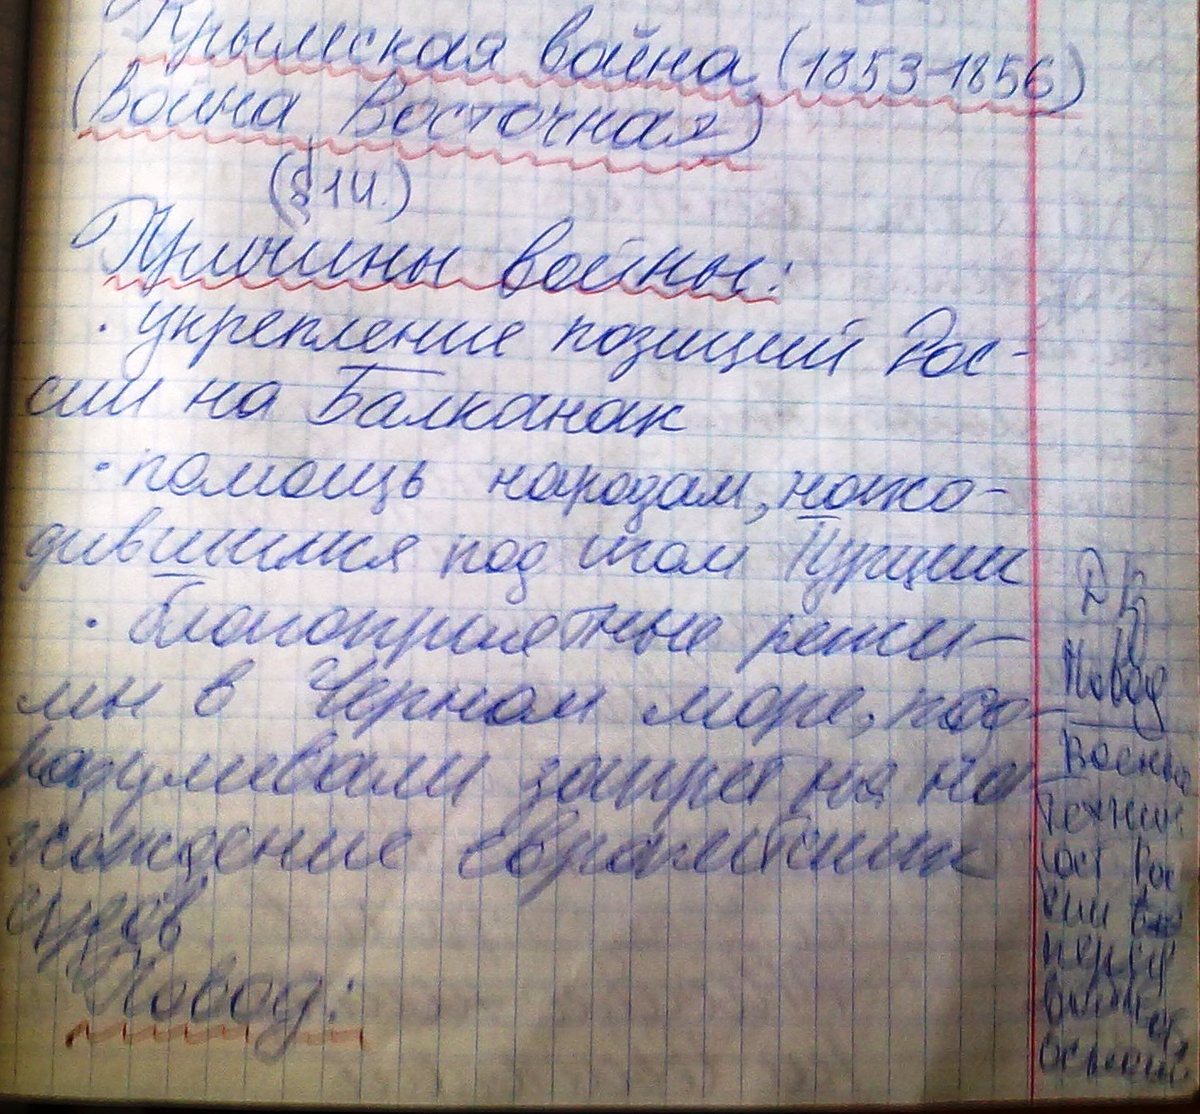 Крымская война (1853-1856)
(Война Восточная)
(§14.)
Причины войны:
· укрепление позиций Рос-
сии на Балканах
· помощь народам, нахо-
дившимся под игом Турции
· благоприятные режи-
мы в Черном море, под-
разумевали запрет на на-
хождение европейских
судов
Повод:
Повод
Военно
Технич.
ост Рос
сии